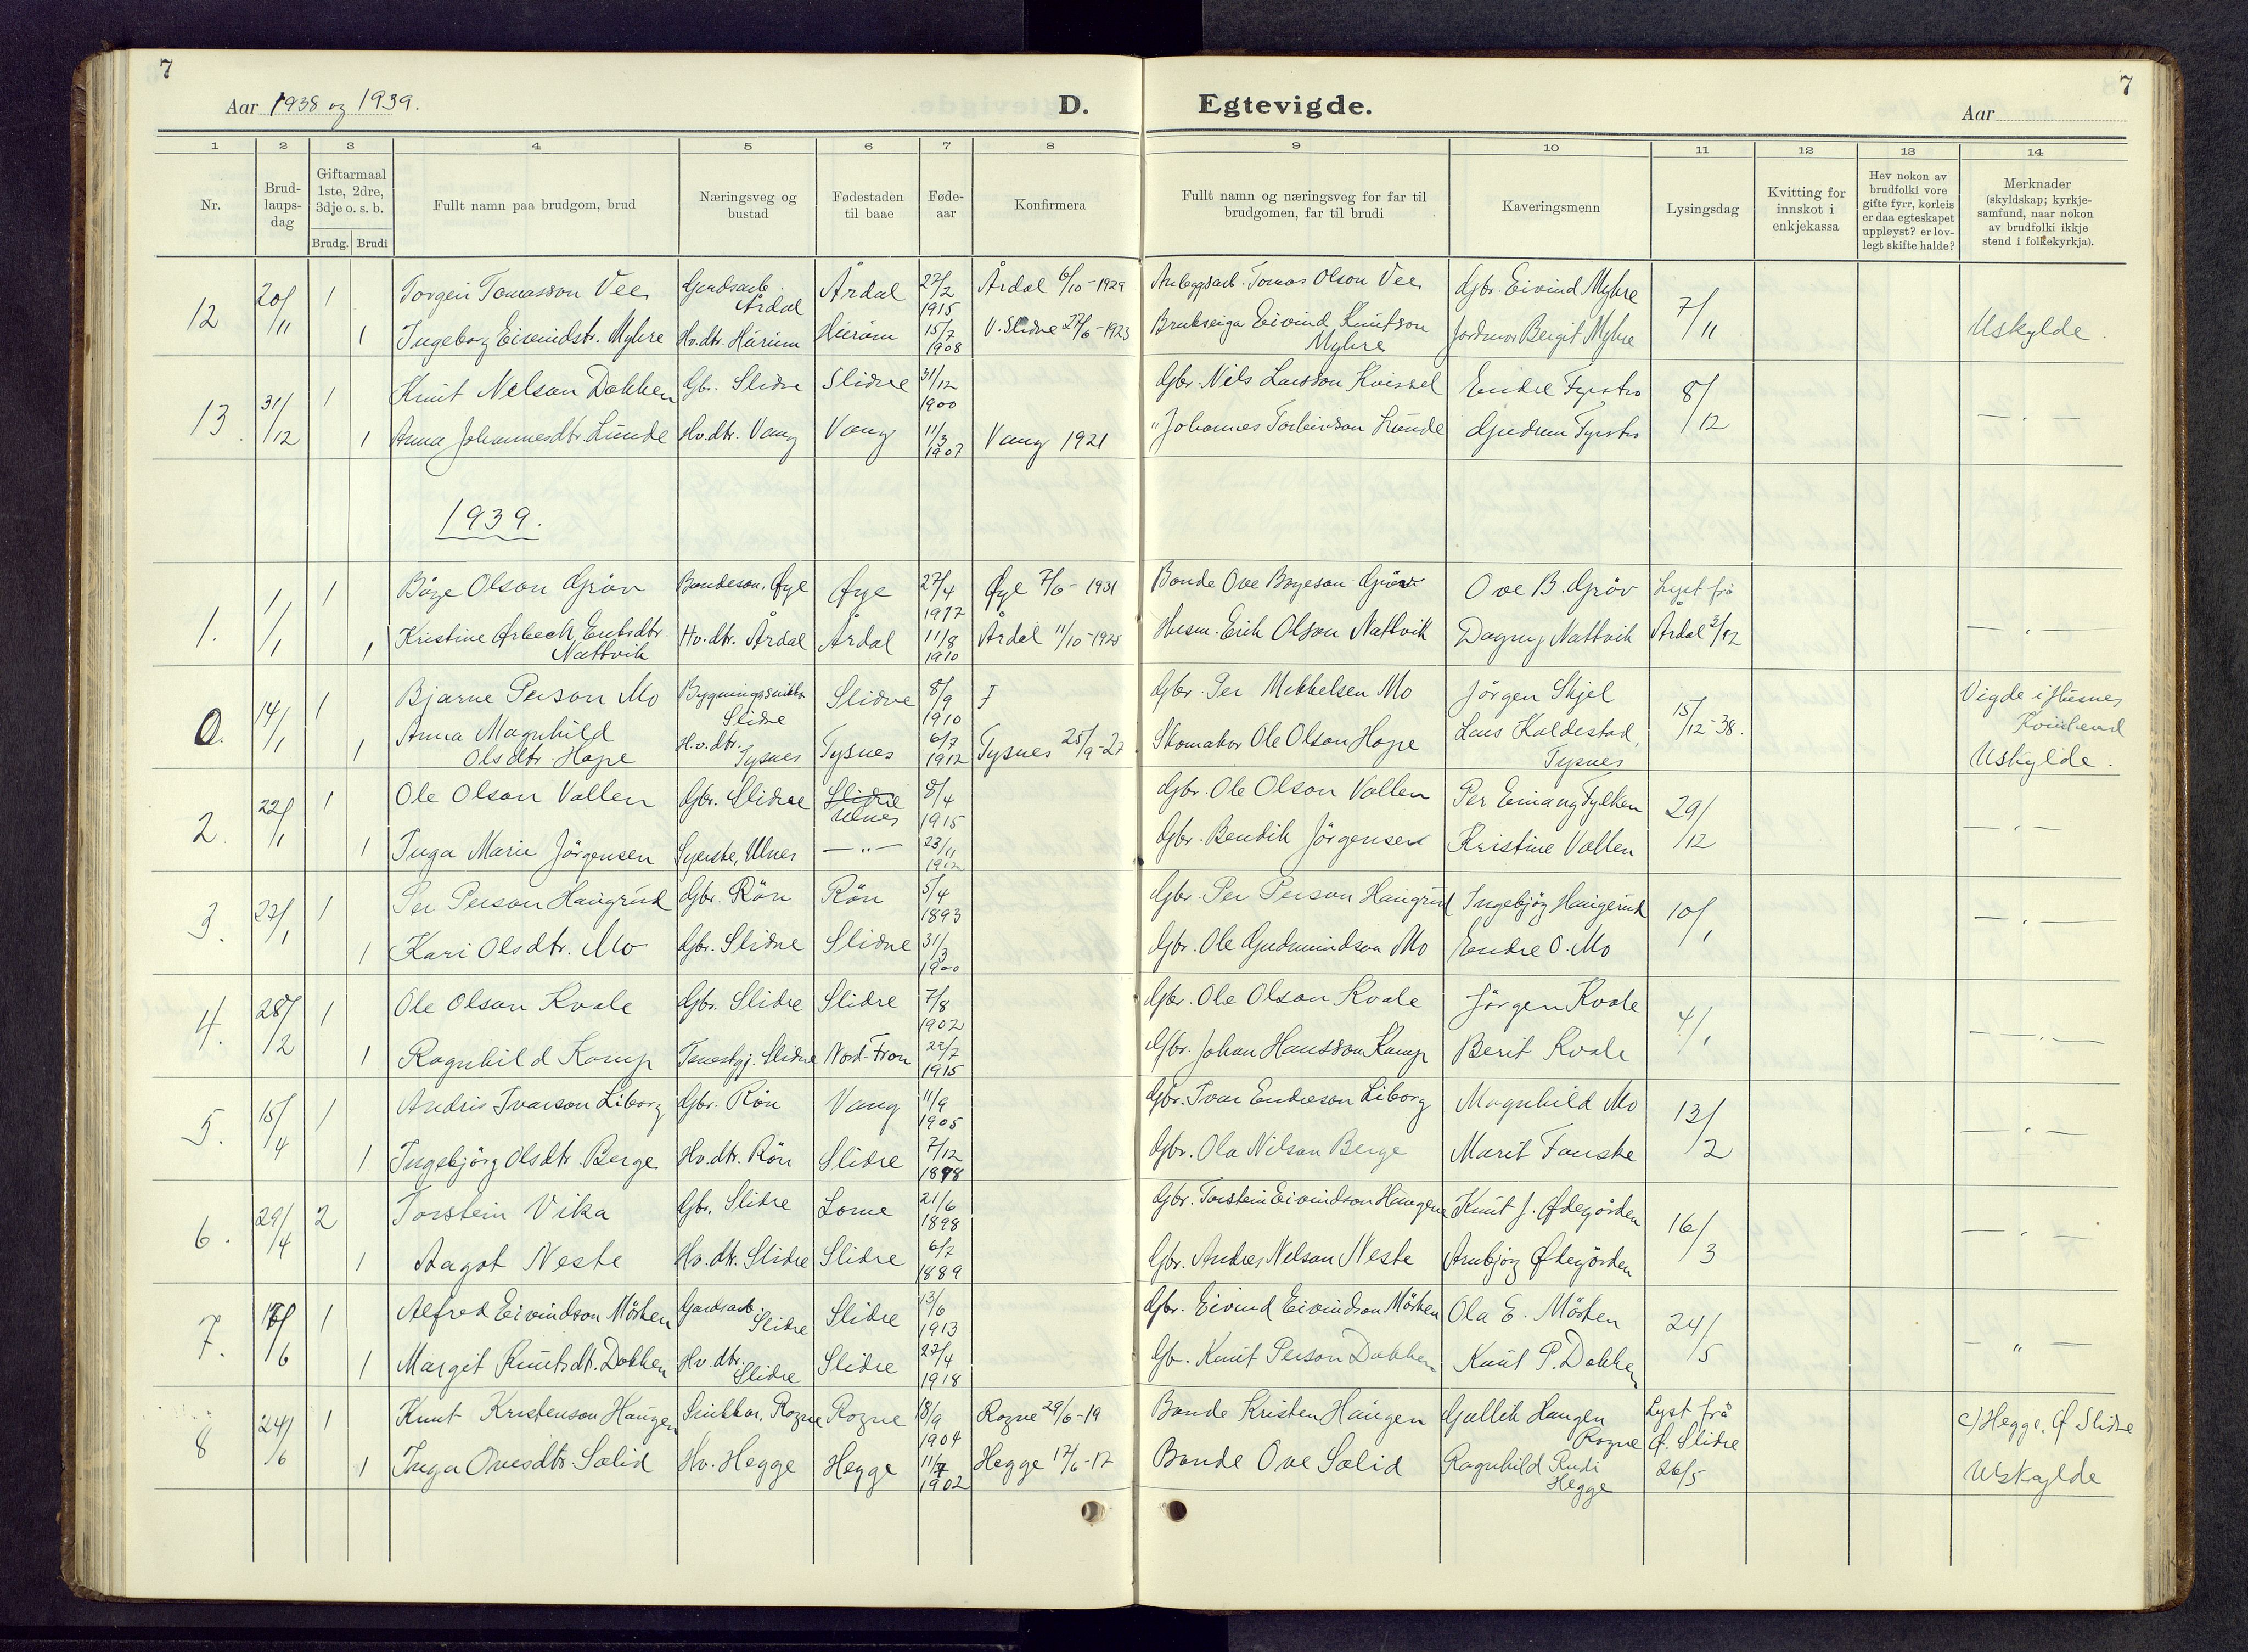 7
7
Aar 1938 og 1939.
D.
Egtevigde.
Aar
1 2 3 4 5 6 7 8 9 10 11 12 13 14
Nr.
Brud-
laups-
dag
Giftarmaal
1ste, 2dre,
3dje o. s. b.
Brudg. Brudi
Fullt namn paa brudgom, brud
Næringsveg og
bustad
Fødestaden
til baae
Føde-
aar
Konfirmera
Fullt namn og næringsveg for far til
brudgomen, far til brudi
Kaveringsmenn
Lysingsdag
Kvitting for
innskot i
enkjekassa
Hev nokon av
brudfolki vore
gifte fyrr, korleis
er daa egteskapet
uppløyst? er lov-
legt skifte halde?
Merknader
(skyldskap; kyrkje-
samfund, naar nokon
av brudfolki ikkje
stend i folkekyrkja).
12 20/11 1 Torgeir Tomasson Vee Gardsarb. Årdal Årdal 22/2 1915 Årdal 6/10-1929 Anleggsarb. Tomas Olson Vee Gbr. Eivind Myhre 7/11
1 Ingeborg Eivindstr. Myhre Hv.dtr. Hurum Hurum 15/7 1908 V. Slidre 27/6-1923 Brukseiga Eivind Knutson Myhre Jordmor Bergit Myhre Uskylde.
13. 31/12 1 Knut Nelson Dokken Gbr. Slidre Slidre 31/12 1900 Gbr. Nils Larsson Kvissel Endre Fystro 8/12
1 Anna Johannesdtr. Lunde Hv.dtr. Vang Vang 11/3 1907 Vang 1921 " Johannes Torleivson Lunde Gudrun Fystro — " —
1939.
1. 1/1 1 Båge Olson Gröv Bondeson, Øye Øye 27/4 1917 Øye 7/6-1931 Bonde Ove Bageson Gröv Ove B. Gröv Lyst frå
1 Kristine Ørbech Eriksdtr. Nattvik Hv.dtr. Årdal Årdal 11/8 1910 Årdal 11/10-1925 Husm. Erik Olson Nattvik Dagny Nattvik Årdal 3/12 — " —
0. 14/1 1 Bjarne Person Mo Bygningssnikkar Slidre Slidre 8/9 1910 Gbr. Per Mikkelsen Mo Jörgen Skjel 15/12-38. Vigde i Husnes Kvinherad
1 Anna Magnhild Olsdtr. Hope H.v.dtr. Tysnes Tysnes 6/7 1912 Tysnes 25/9-27 Skomakar Ole Olson Hope Lars Kaldestad, Tysnes Uskylde.
2. 22/1 1 Ole Olson Vallen Gbr. Slidre Slidre Ulnes 8/4 1915 Gbr. Ole Olson Vallen Per Fylken 29/12
1 Inga Marie Jörgensen Syerske, Ulnes — " — 23/11 1912 Gbr. Bendik Jörgensen Kristine Vallen — " —
3. 27/1 1 Per Person Haugrud Gbr. Rön Rön 5/4 1893 Gbr. Per Person Haugrud Ingebjög Haugerud 10/1
1 Kari Olsdtr. Mo Gbr. Slidre Slidre 31/3 1900 Gbr. Ole Gudmundson Mo Endre O. Mo — " —
4. 28/2 1 Ole Olson Kvale Gbr. Slidre Slidre 7/8 1902 Gbr. Ole Olson Kvale Jörgen Kvale 4/1
1 Ragnhild Kamp Tenestgj. Slidre Nord-Fron 22/7 1915 Gbr. Johan Hansson Kamp Berit Kvale — " —
5. 15/4 1 Andris Ivarson Liborg Gbr. Rön Vang 11/9 1905 Gbr. Ivar Endreson Liborg Magnhild Mo 13/2
1 Ingebjörg Olsdtr. Berge Hv.dtr. Rön Slidre 7/12 1898 Gbr. Ola Nilson Berge Marit Fauske — " —
6. 29/4 2 Torstein Vika Gbr. Slidre Lome 21/6 1898 Gbr. Torstein Eivindson Haugene Knut J. Ødegården 16/3
1 Aagot Neste Hv.dtr. Slidre Slidre 6/7 1889 Gbr. Andres Nelson Neste Arnbjörg Ødegården — " —
7. /6 1 Alfred Eivindson Mörken Gardsarb. Slidre Slidre 13/6 1913 Gbr. Eivind Eivindson Mörken Ola E. Mörken 24/5
1 Margit Knutsdtr. Dokken Hv.dtr. Slidre Slidre 27/4 1918 Gb. Knut Person Dokken Knut P. Dokken — " —
8 24/6 1 Knut Kristenson Haugen Snikkar, Rogne Rogne 18/9 1904 Rogne 29/6-19 Bonde Kristen Haugen Gullik Haugen Rogne Lyst frå Ø. Slidre 26/5 c) Hegge, Ø Slidre
1 Inga Ovesdtr. Solid Hv. Hegge Hegge 11/7 1902 Hegge 17/6-17 Bonde Ove Solid Ragnhild Rudi Hegge Uskylde